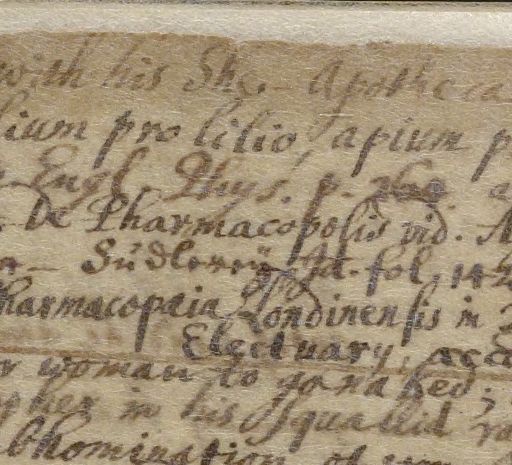 with his She - Apotheca
lium pro lilio, apium p
Engl. Phys. p.
De Pharmacopolis vid. A
fol. 142
harmacopaia Londinensis in
Electuary, acco
r woman to go naked;
pher in his squallid ra
bhomination of